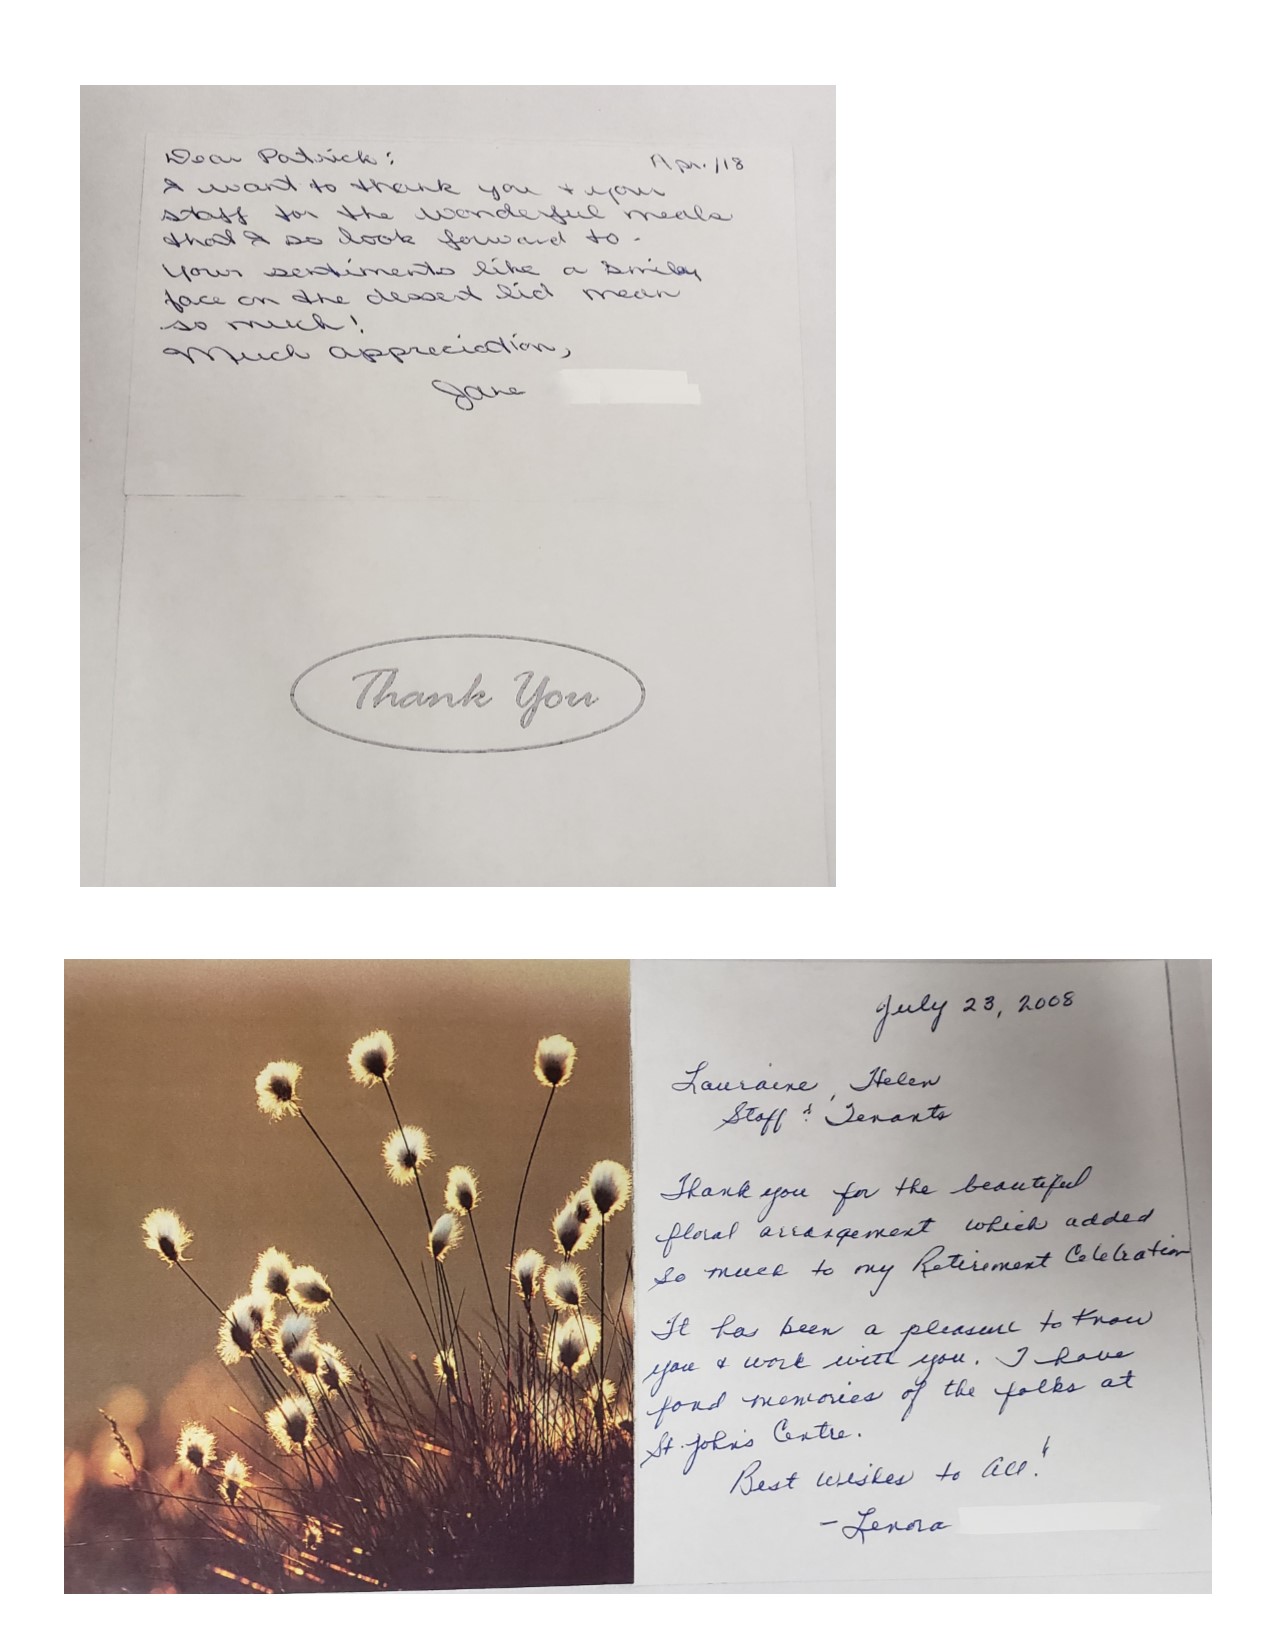 Dear Patrick: Apr./18
I want to thank you + your
staff for the wonderful meals
that I so look forward to.
Your sentiments like a smiley
face on the dessert lid mean
so much!
Much appreciation,
Jane
Thank You
July 23, 2008
Lauraine, Helen
Staff & Tenants
Thank you for the beautiful
floral arrangement which added
so much to my Retirement Celebration
It has been a pleasure to know
you & work with you. I have
fond memories of the folks at
St. John's Centre.
Best wishes to All!
- Lenora